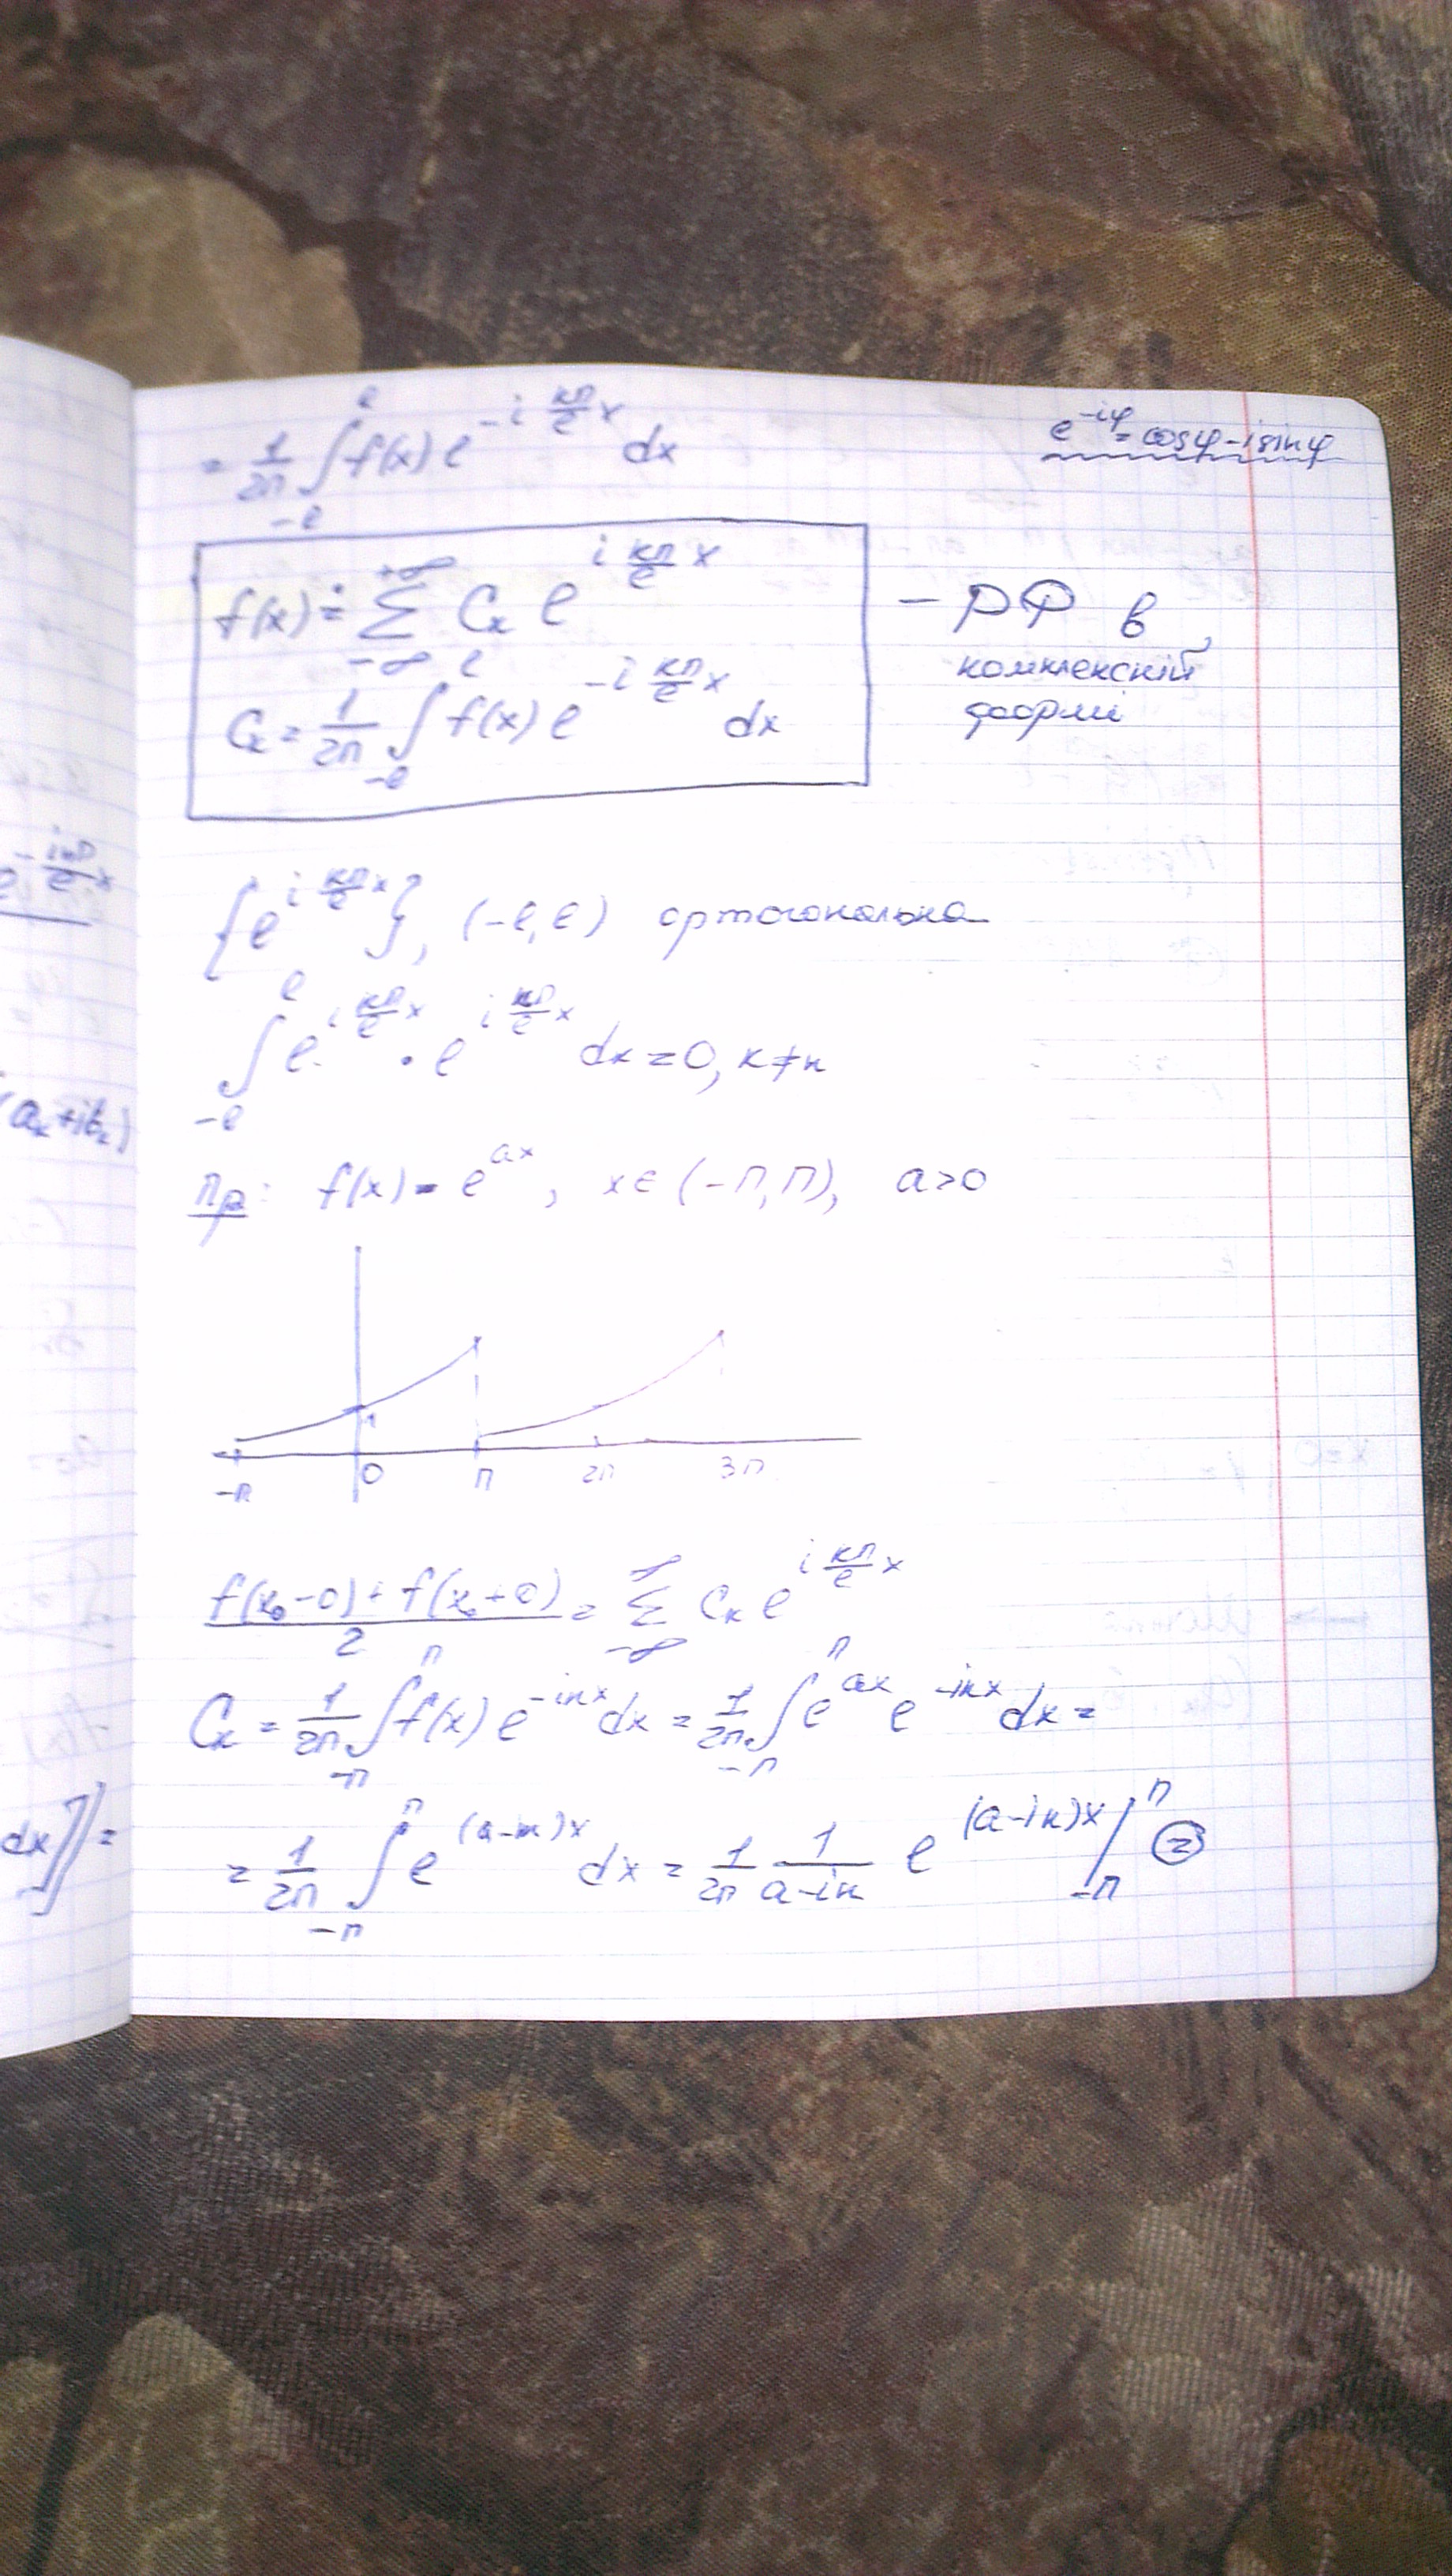 = 1/2π ∫_{-ℓ}^{ℓ} f(x) e^{-i kπ/ℓ x} dx
e^{-iφ} = cosφ - i sinφ
f(x) ≐ ∑_{-∞}^{+∞} C_k e^{i kπ/ℓ x}
C_k = 1/2π ∫_{-ℓ}^{ℓ} f(x) e^{-i kπ/ℓ x} dx
– РФ в
комплексній
формі
{e^{i kπ/ℓ x}}, (-ℓ, ℓ) ортогональна
∫_{-ℓ}^{ℓ} e^{i kπ/ℓ x} · e^{i kπ/ℓ x} dx = 0, k ≠ n
Пр: f(x) = e^{ax}, x ∈ (-π, π), a > 0
1
-π 0 π 2π 3π
(f(x₀-0) + f(x₀+0))/2 = ∑_{-∞}^{∞} C_k e^{i kπ/ℓ x}
C_k = 1/2π ∫_{-π}^{π} f(x) e^{-ikx} dx = 1/2π ∫_{-π}^{π} e^{ax} e^{-ikx} dx =
= 1/2π ∫_{-π}^{π} e^{(a-ik)x} dx = 1/2π 1/(a-ik) e^{(a-ik)x} |_{-π}^{π} ⊜
(a_k + ib_k)
dx]] =